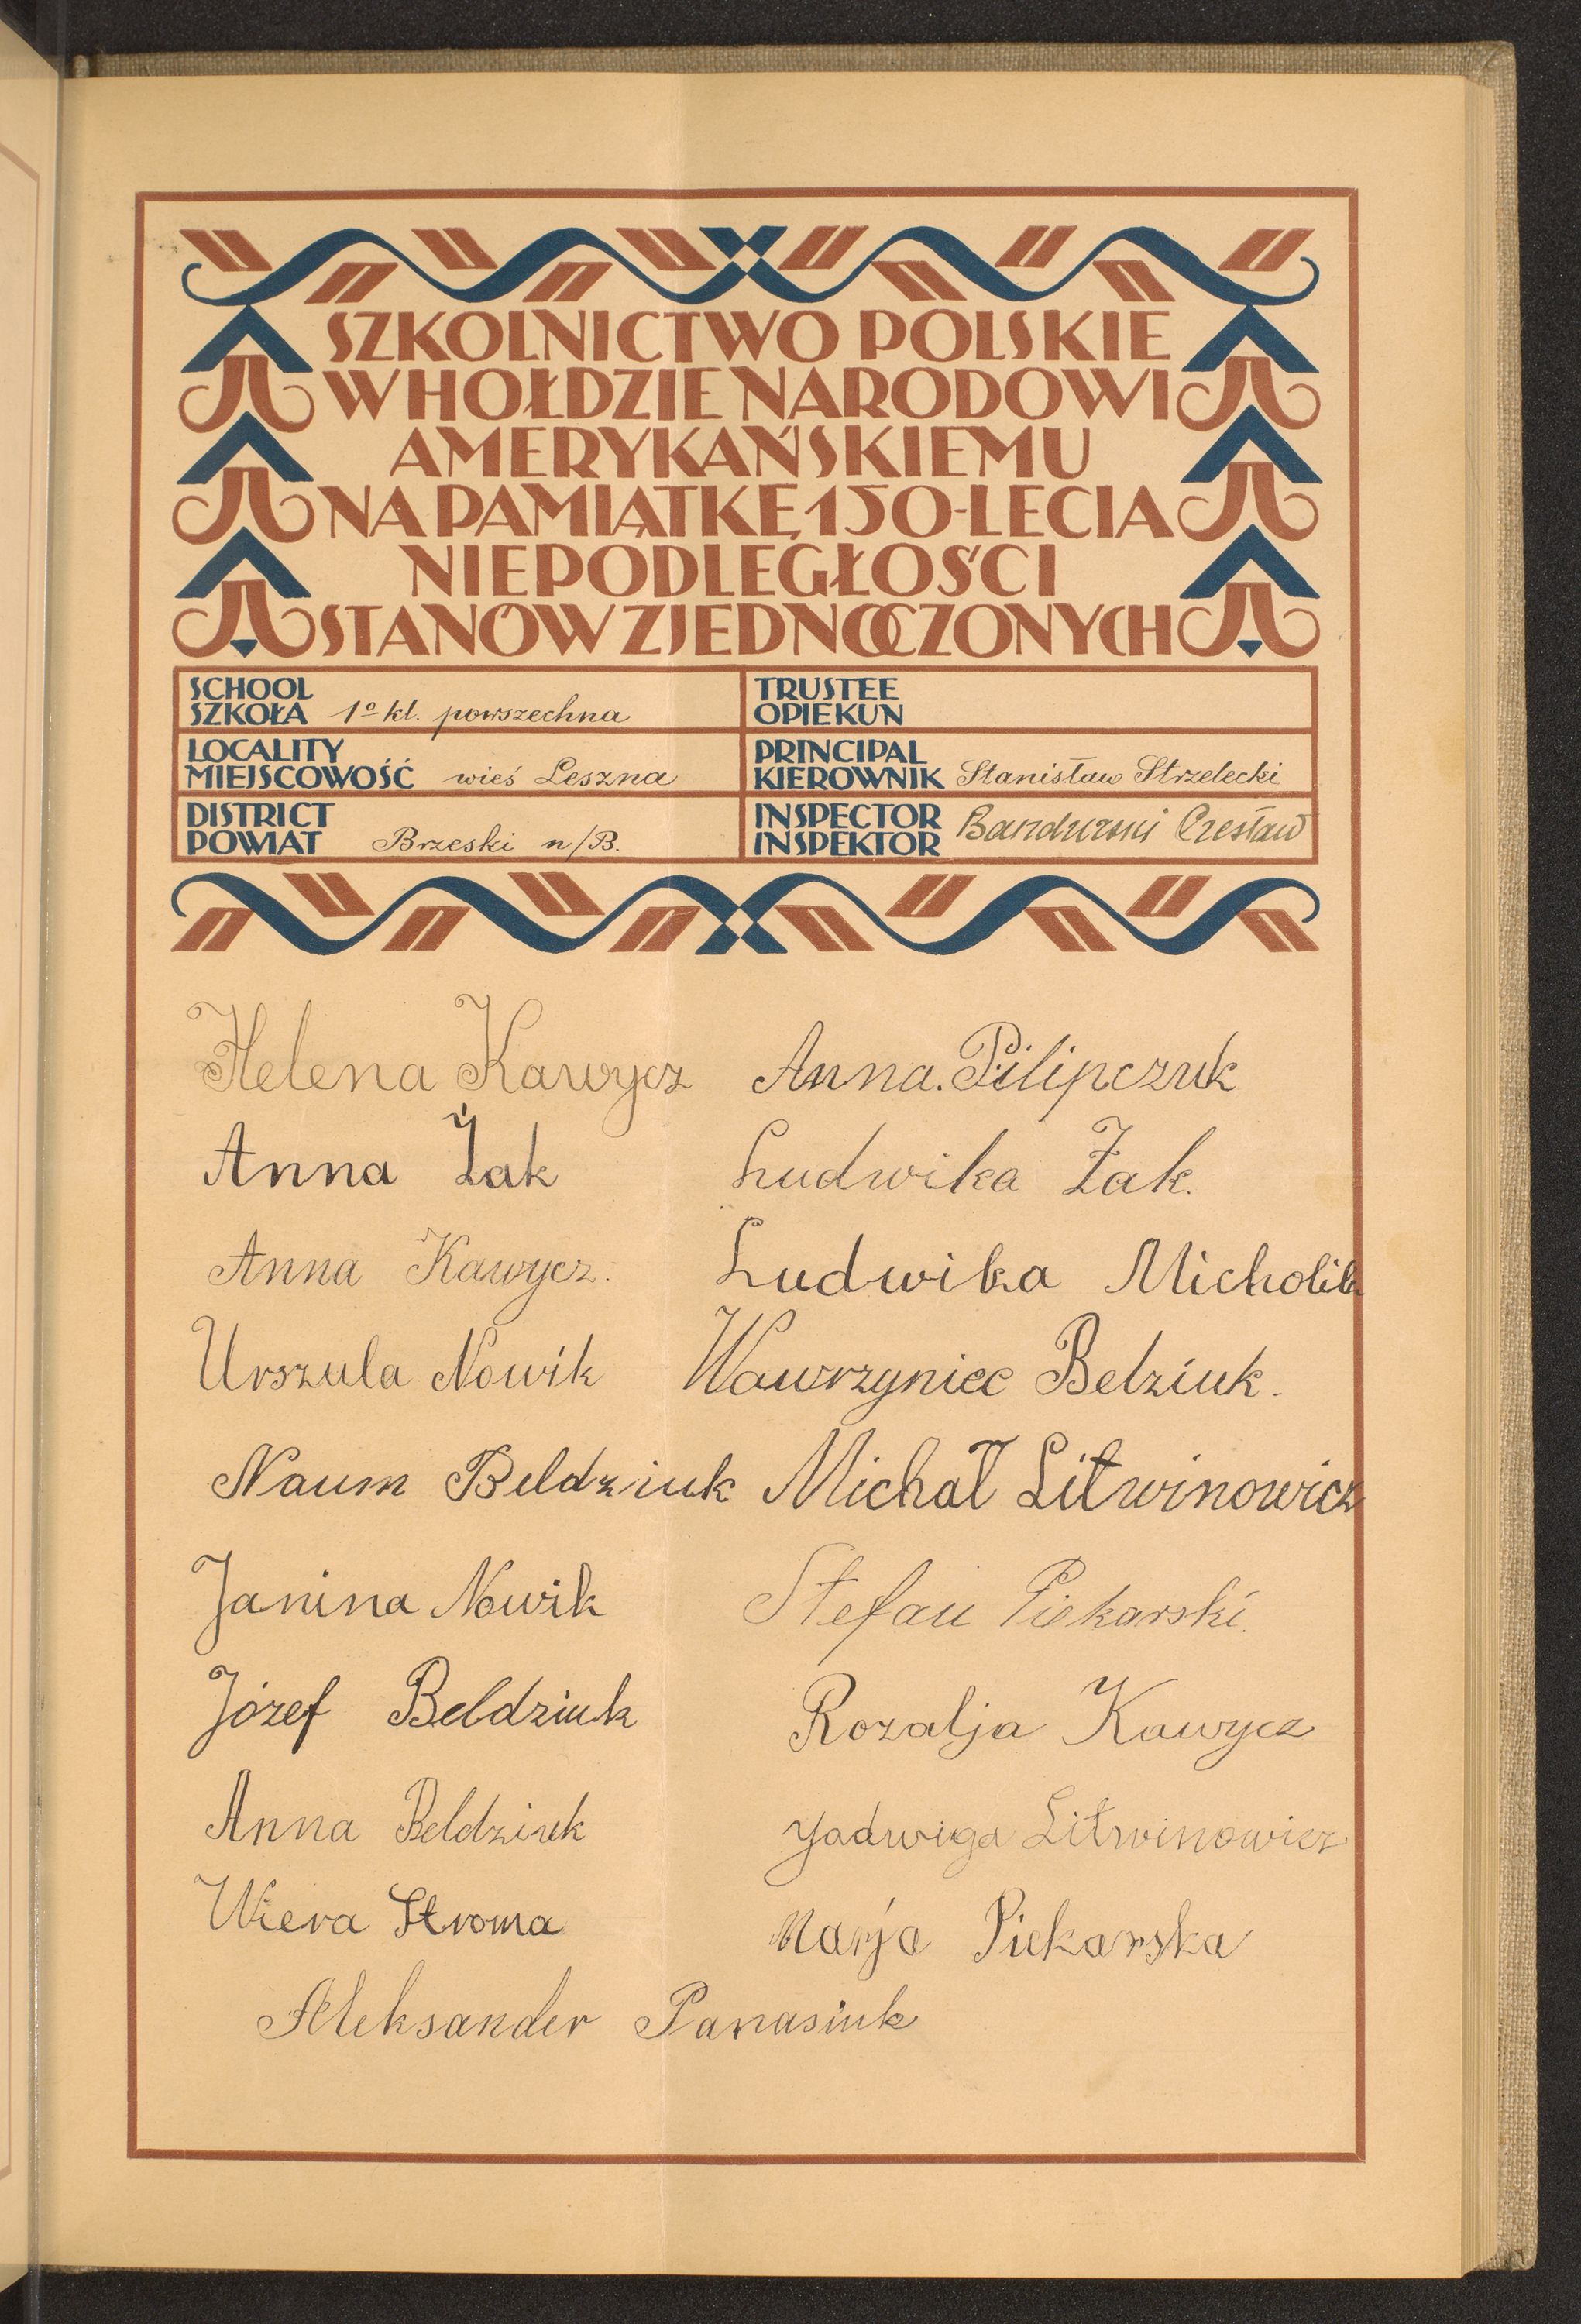 SZKOLNICTWO POLSKIE
W HOŁDZIE NARODOWI
AMERYKAŃSKIEMU
NA PAMIĄTKĘ 150-LECIA
NIEPODLEGŁOŚCI
STANÓW ZJEDNOCZONYCH
SCHOOL
SZKOŁA 1º kl. powszechna
TRUSTEE
OPIEKUN
LOCALITY
MIEJSCOWOŚĆ wieś Leszna
PRINCIPAL
KIEROWNIK Stanisław Strzelecki
DISTRICT
POWIAT Brzeski n/B.
INSPECTOR
INSPEKTOR Bandurski Czesław
Helena Kawycz Anna. Pilipczuk
Anna Żak Ludwika Żak.
Anna Kawycz. Ludwika Micholik
Urszula Nowik Wawrzyniec Belziuk.
Naum Beldziuk Michał Litwinowicz
Janina Nowik Stefan Piekarski.
Józef Beldziuk Rozalja Kawycz
Anna Beldziuk Jadwiga Litwinowicz
Wiera Stroma Marja Piekarska
Aleksander Panasiuk